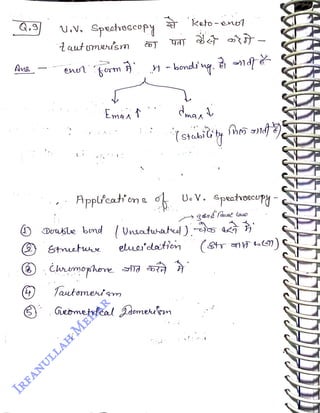 Q.9] U.V. Spectroscopy से keto-enol
tautomerism का पता कैसे करेगे -
Ans - enol form में H-bonding हो जाती है-
Emax ↑ dmax ↓
(stability मिल जाती है)
Applications of U.V. Spectroscopy -
① Double bond (Unsaturated) में
② Structure elucidation (Str ज्ञात करना)
③ Chromophore ज्ञात करने में
④ Tautomerism
⑤ Geometrical Isomerism
IRFANULLAH MEHAR